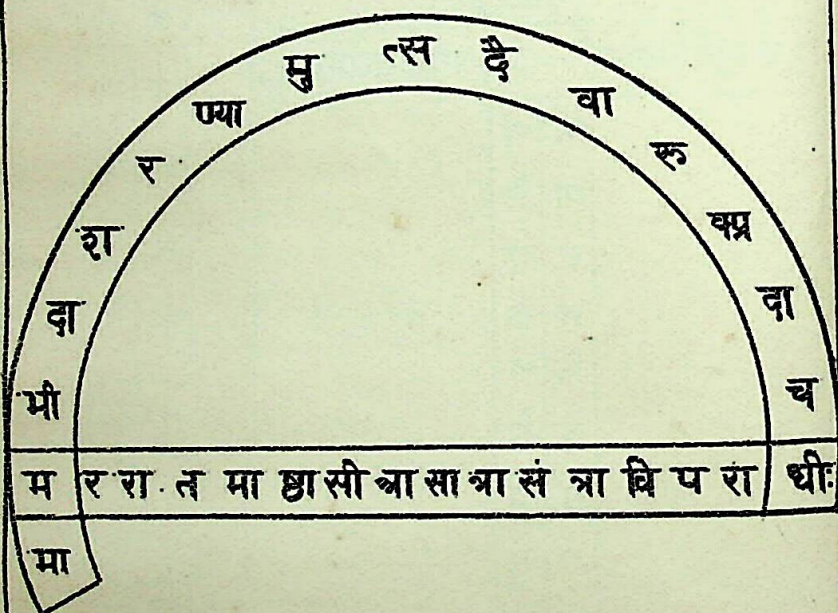 भी दा श र ण्या मु त्स दै वा रू क्प्र दा च
म र रा त मा ष्ठा सी त्रा सा त्रा सं त्रा वि प रा धीः
मा